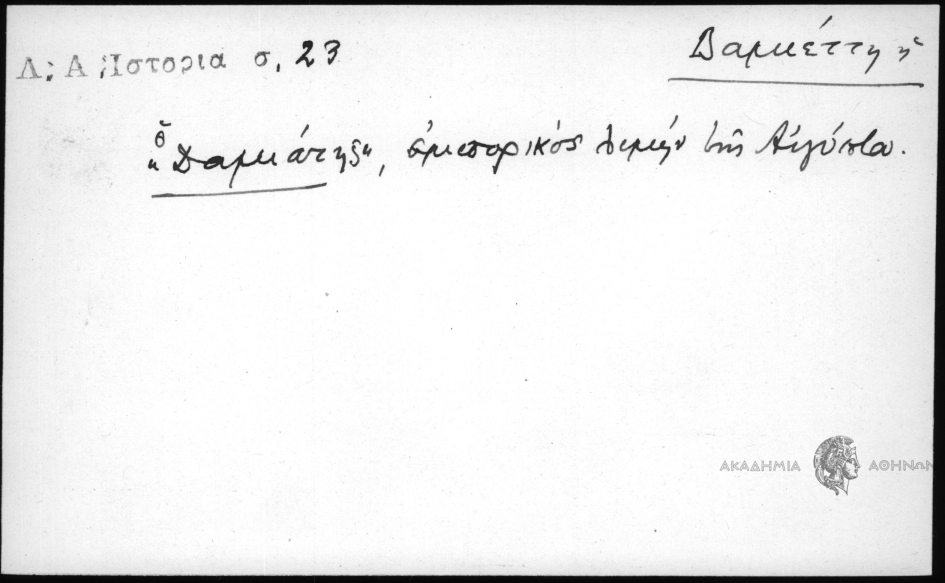 Λ; Α; Ιστορια σ. 23
Δαμιέττη ἡ
ὁ
"Δαμιάτης", ἐμπορικός λιμήν τῆς Αἰγύπτου.
ΑΚΑΔΗΜΙΑ ΑΘΗΝΩΝ